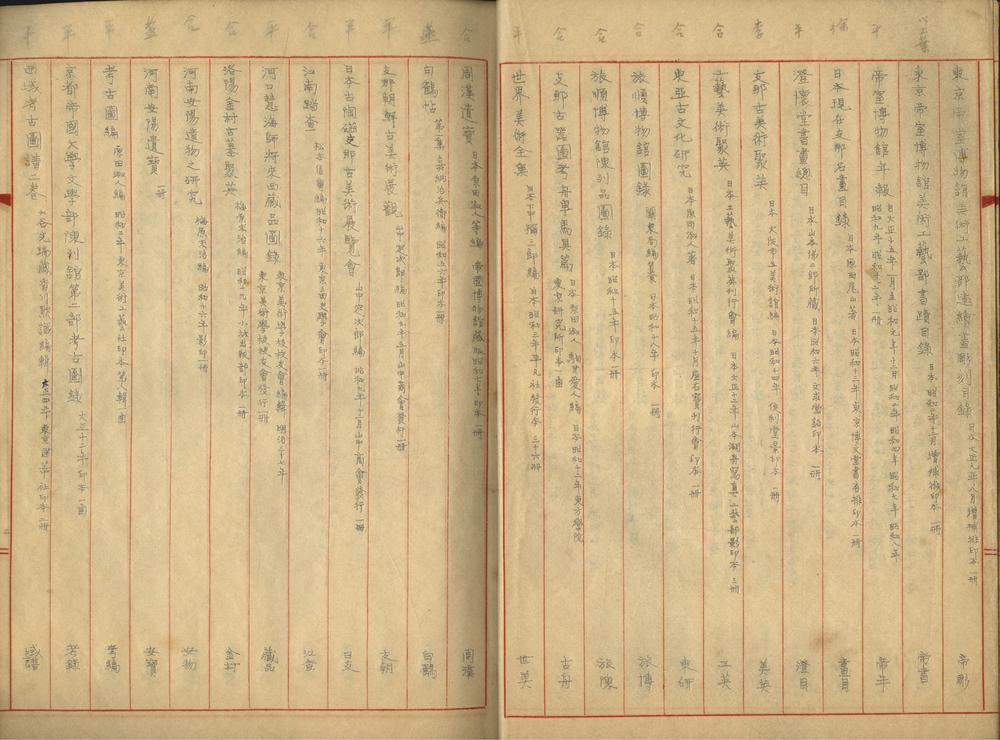 東京帝室博物館美術工藝部連續畫彫刻目錄 日本大正八年八月增補排印本 一冊 帝彫
東京帝室博物館美術工藝部書蹟目錄 日本昭和 年十二月增補排印本 一冊 帝書
平 帝室博物館年報 昭和九年 一冊 帝年
徐 日本現在支那名畫目錄 日本原田尾山著 日本昭和十三年東京博文堂書店排印本一冊 畫目
平 澄懷堂書畫總目 日本山本 所藏 日本昭和六年文求堂 印本 一冊 澄目
李 支那古美術聚英 日本大阪市立美術館編 日本昭和十四年便利堂景印本 一冊 美英
合 工藝美術聚英 日本工藝美術聚英刊行會編 日本大正十二年山本湖舟寫真工藝部影印本 三冊 工英
合 東亞古文化研究 日本原田淑人著 日本昭和十五年十月座右寶刊行會印本 一冊 東研
合 旅順博物館圖錄 關東局編纂 日本昭和十八年印本 一冊 旅博
合 旅順博物館陳列品圖錄 日本昭和十五年印本一冊 旅陳
合 支那古器圖考舟車馬具篇 日本原田淑人 駒井愛人編 日本昭和十二年東方學院東京研究所印本一函 古舟
平 世界美術全集 日本下中彌三郎編 日本昭和三年平凡社發行本 三十六冊 世美
合 周漢遺寶 日本原田淑人等編 帝國博物館藏版昭和七年印本 一冊 周漢
燕 白鶴帖 第一集 嘉納治兵衛編 昭和六年印本一冊 白鶴
平 支那朝鮮古美術展觀 山中定次郎編 昭和九年五月山中商會發行一冊 支朝
平 日本古陶磁支那古美術展覽會 山中定次郎編 昭和九年十二月山中商會發行 一冊 日支
合 江南踏查 松本信廣編 昭和十六年東京三田史學會印本一冊 江查
平 河口慧海師將來西藏品圖錄 東京美術學校校友會編輯 明治三十七年東京美術學校校友會發行一冊 藏品
合 洛陽金村古墓聚英 梅原末治編 昭和十九年小林出版部印本一冊 金村
合 河南安陽遺物之研究 梅原末治編 昭和十六年影印一冊 安物
河南安陽遺寶 一冊 安寶
平 考古圖編 原田淑人編 昭和二年東京美術工藝社印本 第八輯一函 考編
平 京都帝國大學文學部陳列館第二部考古圖錄 大正十二年印本一函 考錄
平 西域考古圖譜二卷 大谷光瑞藏香川默識編輯 大正四年東京國華社印本二冊 域譜
二